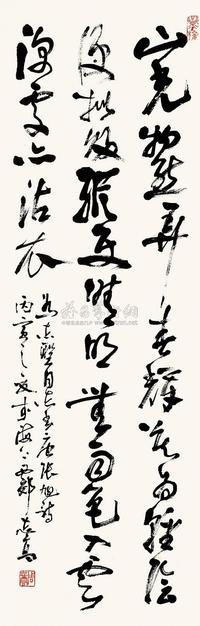 山光物態弄春輝莫為輕陰
便擬歸縱使晴明無雨色入雲
深處亦沾衣
同志書唐張旭詩
丙寅之夏海上西郊志高